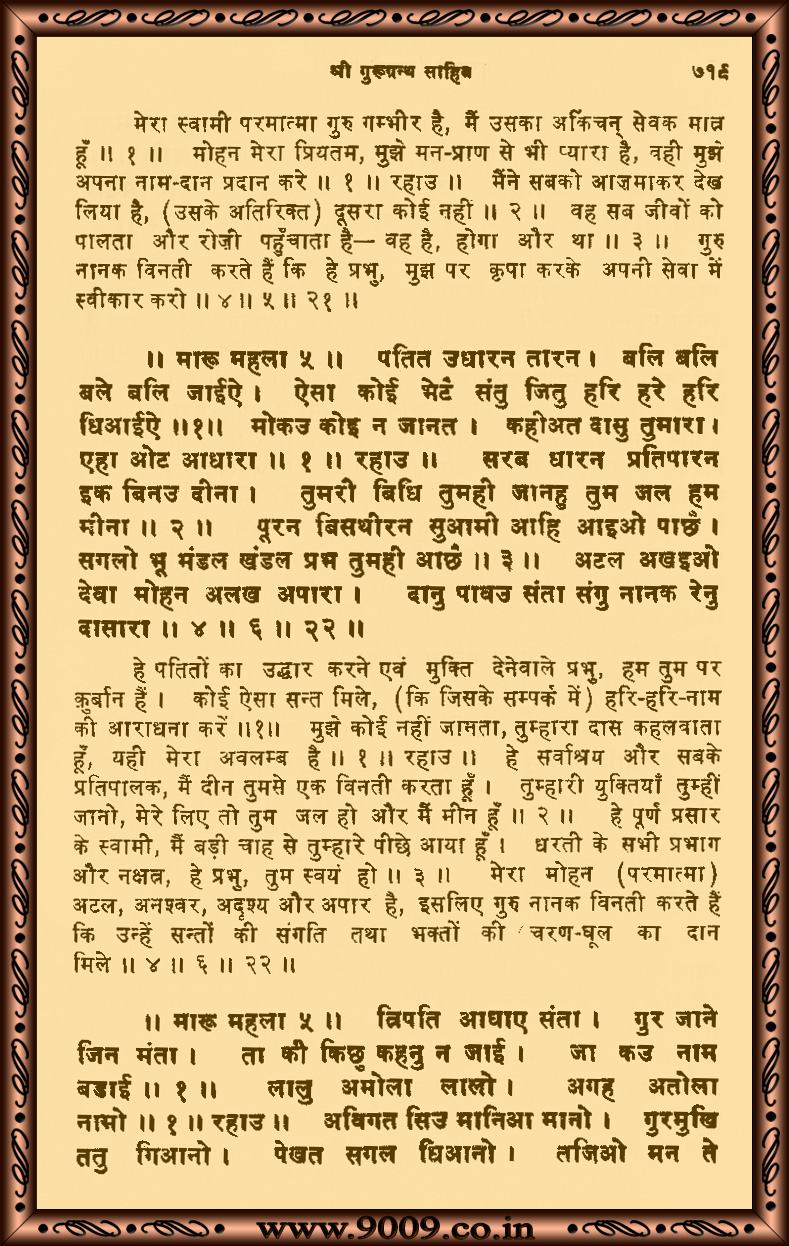 श्री गुरूग्रन्थ साहिब
७१९
मेरा स्वामी परमात्मा गुरु गम्भीर है, मैं उसका अकिंचन् सेवक मात्र
हूँ ॥ १ ॥ मोहन मेरा प्रियतम, मुझे मन-प्राण से भी प्यारा है, वही मुझे
अपना नाम-दान प्रदान करे ॥ १ ॥ रहाउ ॥ मैंने सबको आज़माकर देख
लिया है, (उसके अतिरिक्त) दूसरा कोई नहीं ॥ २ ॥ वह सब जीवों को
पालता और रोज़ी पहुँचाता है— वह है, होगा और था ॥ ३ ॥ गुरु
नानक विनती करते हैं कि हे प्रभु, मुझ पर कृपा करके अपनी सेवा में
स्वीकार करो ॥ ४ ॥ ५ ॥ २१ ॥
॥ मारू महला ५ ॥ पतित उधारन तारन । बलि बलि
बले बलि जाईऐ । ऐसा कोई भेटै संतु जितु हरि हरे हरि
धिआईऐ ॥१॥ मोकउ कोइ न जानत । कहीअत दासु तुमारा ।
एहा ओट आधारा ॥ १ ॥ रहाउ ॥ सरब धारन प्रतिपारन
इक बिनउ दीना । तुमरी बिधि तुमही जानहु तुम जल हम
मीना ॥ २ ॥ पूरन बिसथीरन सुआमी आहि आइओ पाछै ।
सगलो भू मंडल खंडल प्रभ तुमही आछै ॥ ३ ॥ अटल अखइओ
देवा मोहन अलख अपारा । दानु पावउ संता संगु नानक रेनु
दासारा ॥ ४ ॥ ६ ॥ २२ ॥
हे पतितों का उद्धार करने एवं मुक्ति देनेवाले प्रभु, हम तुम पर
क़ुर्बान हैं । कोई ऐसा सन्त मिले, (कि जिसके सम्पर्क में) हरि-हरि-नाम
की आराधना करें ॥१॥ मुझे कोई नहीं जानता, तुम्हारा दास कहलवाता
हूँ, यही मेरा अवलम्ब है ॥ १ ॥ रहाउ ॥ हे सर्वाश्रय और सबके
प्रतिपालक, मैं दीन तुमसे एक विनती करता हूँ । तुम्हारी युक्तियाँ तुम्हीं
जानो, मेरे लिए तो तुम जल हो और मैं मीन हूँ ॥ २ ॥ हे पूर्ण प्रसार
के स्वामी, मैं बड़ी चाह से तुम्हारे पीछे आया हूँ । धरती के सभी प्रभाग
और नक्षत्र, हे प्रभु, तुम स्वयं हो ॥ ३ ॥ मेरा मोहन (परमात्मा)
अटल, अनश्वर, अदृश्य और अपार है, इसलिए गुरु नानक विनती करते हैं
कि उन्हें सन्तों की संगति तथा भक्तों की चरण-धूल का दान
मिले ॥ ४ ॥ ६ ॥ २२ ॥
॥ मारू महला ५ ॥ त्रिपति आघाए संता । गुर जाने
जिन मंता । ता की किछु कहनु न जाई । जा कउ नाम
बडाई ॥ १ ॥ लालु अमोला लालो । अगह अतोला
नामो ॥ १ ॥ रहाउ ॥ अविगत सिउ मानिआ मानो । गुरमुखि
ततु गिआनो । पेखत सगल धिआनो । तजिओ मन ते
www.9009.co.in